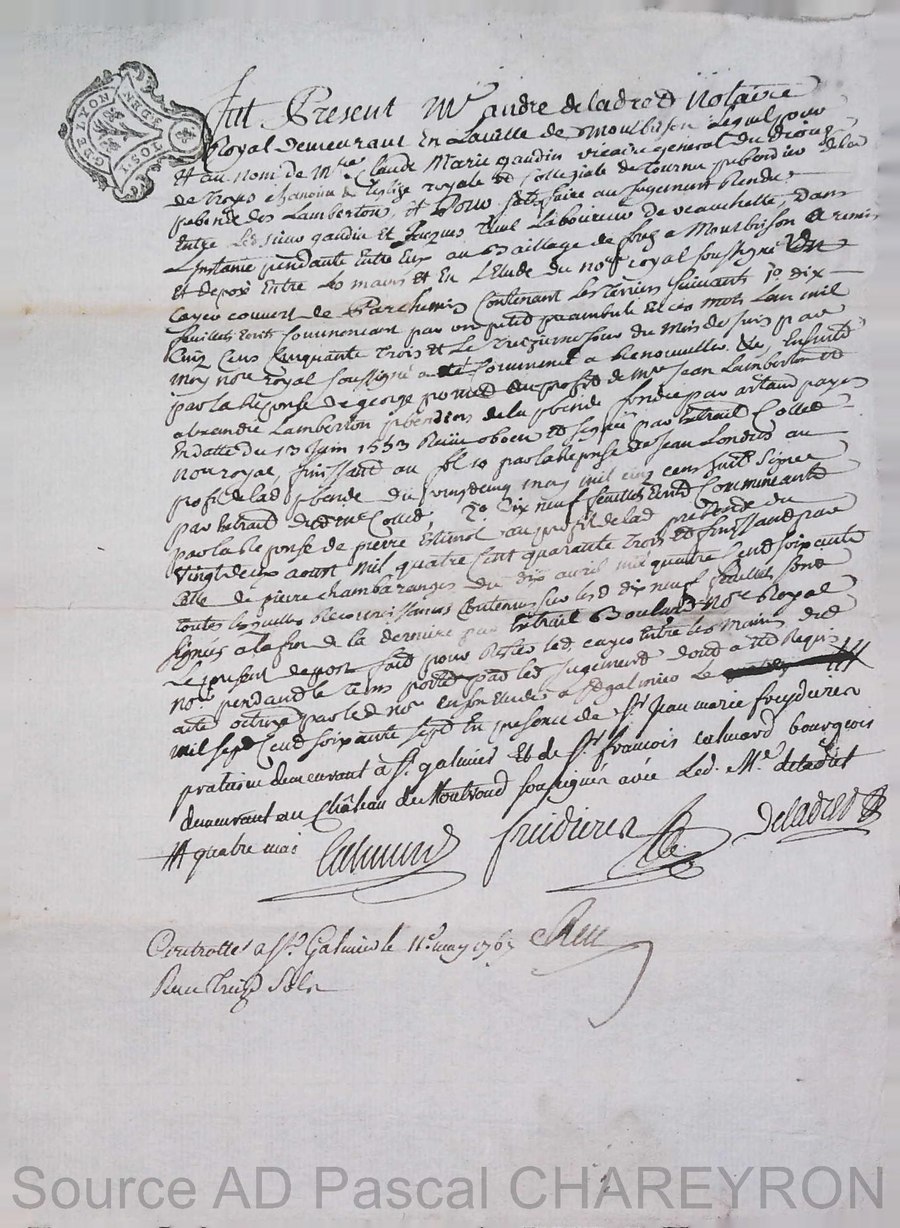 GDE LYON
Fut Present Mre andre deladret Notaire
Royal Demeurant En La ville de Montbrison Lequel pour
Et au nom de Mre Claude Marie gaudin vicaire general du
de Troyes chanoine de leglise royale et collegiale de prebendier de la
prebende des Lamberton, et Pour satisfaire au Jugement Rendu
Entre Led sieur gaudin et Jacques Laboureur de veauchette, Dans
Linstance pendante entre Eux au Bailliage de forez a Montbrison a remis
Et deposé Entre Les mains et En L'Etude du nore royal soussigné Un
Cayer couvert de Parchemin Contenant Les terriers suivants 1o dix
feuillets Ecrits Commencant par un petit preambule En ces mots Lan mil
Cinq Cens Cinquante Trois Et Le Treizieme Jour du Mois de Juin par
moy nore royal soussigné a eté Commencé a Renouveller &c, Ensuite
par la Reponse de george au profit de Mre Jean Lamberton et
alexandre Lamberton prebendiers de la prebende fondée par artaud payen
En datte du 13 Juin 1553 signée par Extrait Collet
nore royal, finissant au fol 10 par la Reponse de Jean Londres au
profit de lad prebende du vingt cinq may mil cinq cens huit signée
par Extrait dud Me Collet, 2o Dix neuf feuillets Ecrits Commencants
par la Reponse de pierre Estienol au profit de lad prebende du
vingt deux aoust Mil quatre Cent quarante Trois Et finissant par
Celle de pierre chambaranges du dix avril mil quatre Cent soixante
toutes lesquelles Reconnoissances Contenues sur les d dix neuf feuillets sont
signés a la fin de la derniere par Extrait Boulard Nore Royal
Le present depost fait pour Rester led. cayer Entre les mains dud
nore pendant le Tems porté par led Jugement dont a eté Requis
acte octroyé par led nore En son Etude a St galmier Le
mil sept Cent soixante sept En presence de Sr Jean marie fruidiere
praticien demeurant à St. galmier Et de Sr. françois calmard bourgeois
demeurant au Château de Montrond soussignés avec Led. Me. deladret
quatre mai
Calmard fruidiere Deladret
Controllé a St. Galmier le 11e. may 1767
Recu Treize Sols
Source AD Pascal CHAREYRON